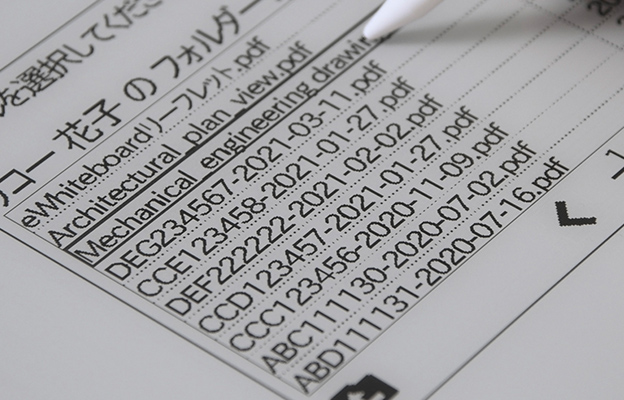 を選択してくださ
コー 花子 の フォルダー
eWhiteboardリーフレット.pdf
Architectural_plan_view.pdf
Mechanical_engineering_drawing
DEG234567-2021-03-11.pdf
CCE123458-2021-01-27.pdf
DEF222222-2021-02-02.pdf
CCD123457-2021-01-27.pdf
CCC123456-2020-11-09.pdf
ABC111130-2020-07-02.pdf
ABD111131-2020-07-16.pdf